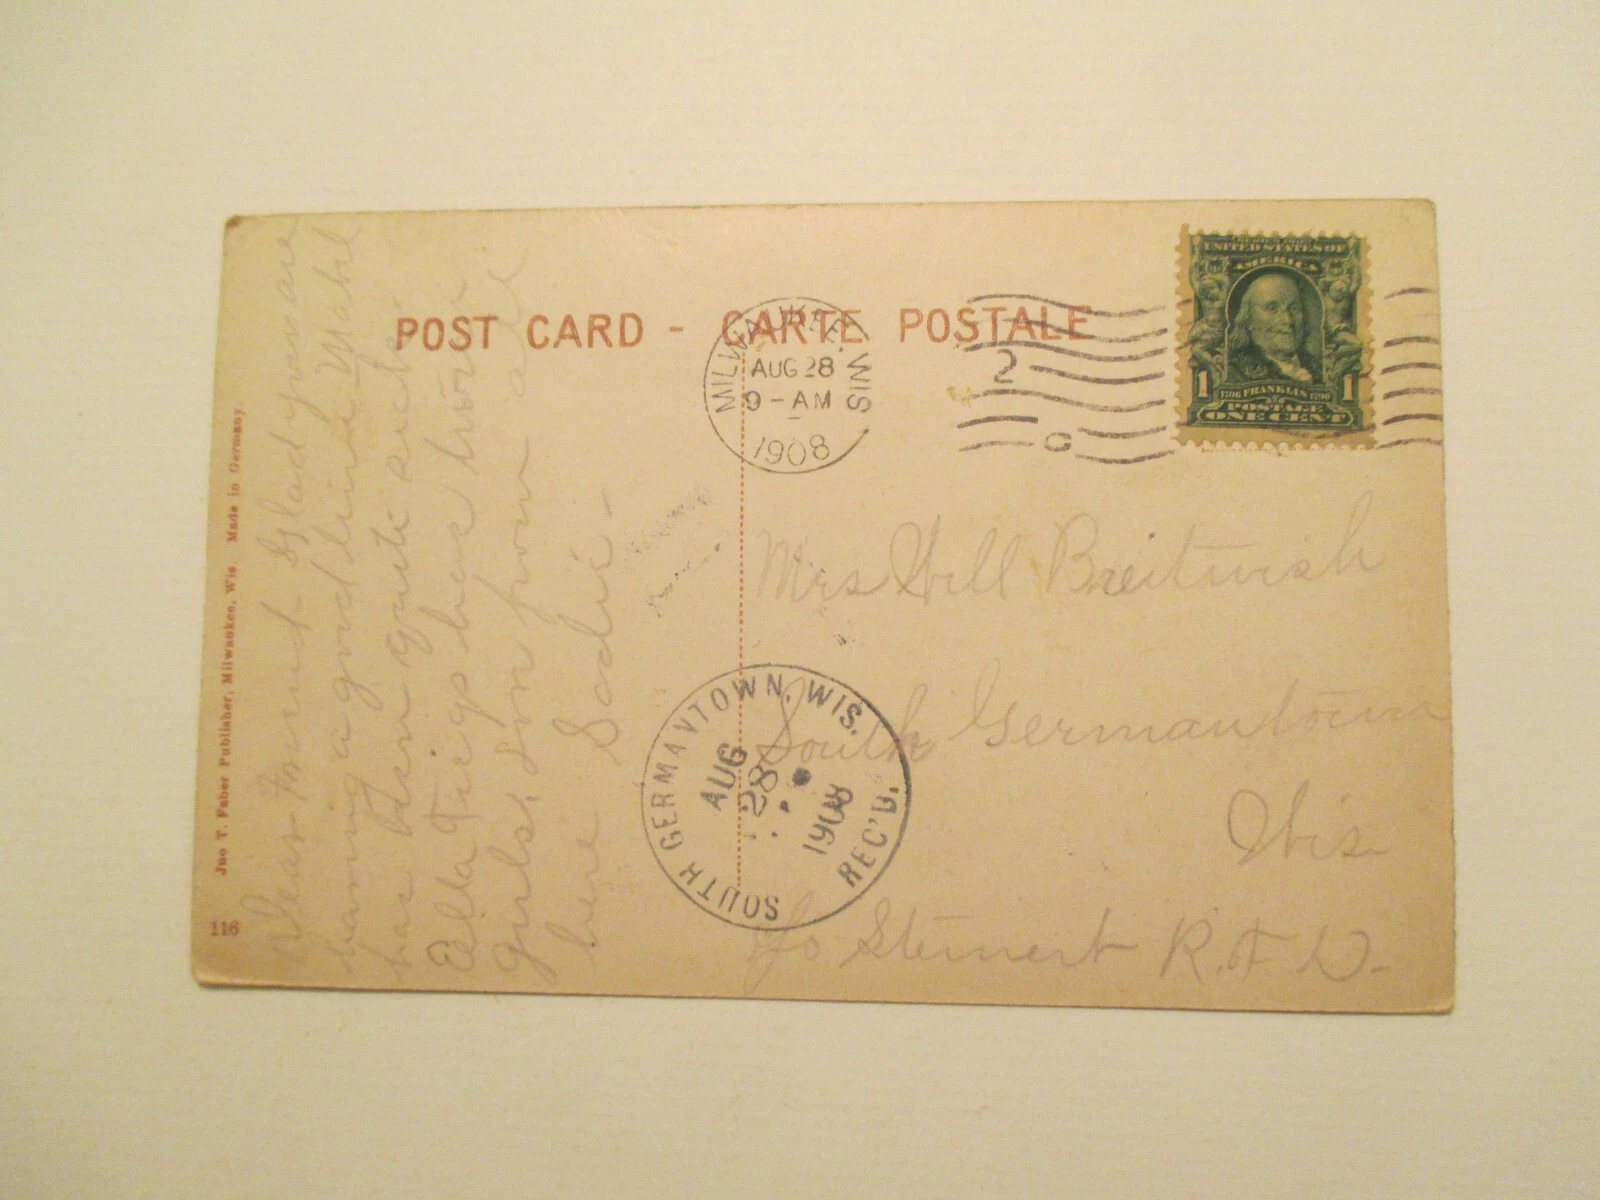 POST CARD - CARTE POSTALE
MILWAUKEE, WIS.
AUG 28
9-AM
1908
2
C
UNITED STATES OF
AMERICA
1 FRANKLIN 1
POSTAGE
ONE CENT
Dear Friend. Glad you are
having a good time. Mabel
has been quite sick
Ella here
Girls. from all
here Sadie -
Mrs Will Breitwish
South Germantown
Wis
c/o Steinert R. F D.
SOUTH GERMANTOWN, WIS.
AUG
28
1908
REC'D.
Joe T. Faber Publisher, Milwaukee, Wis. Made in Germany.
116